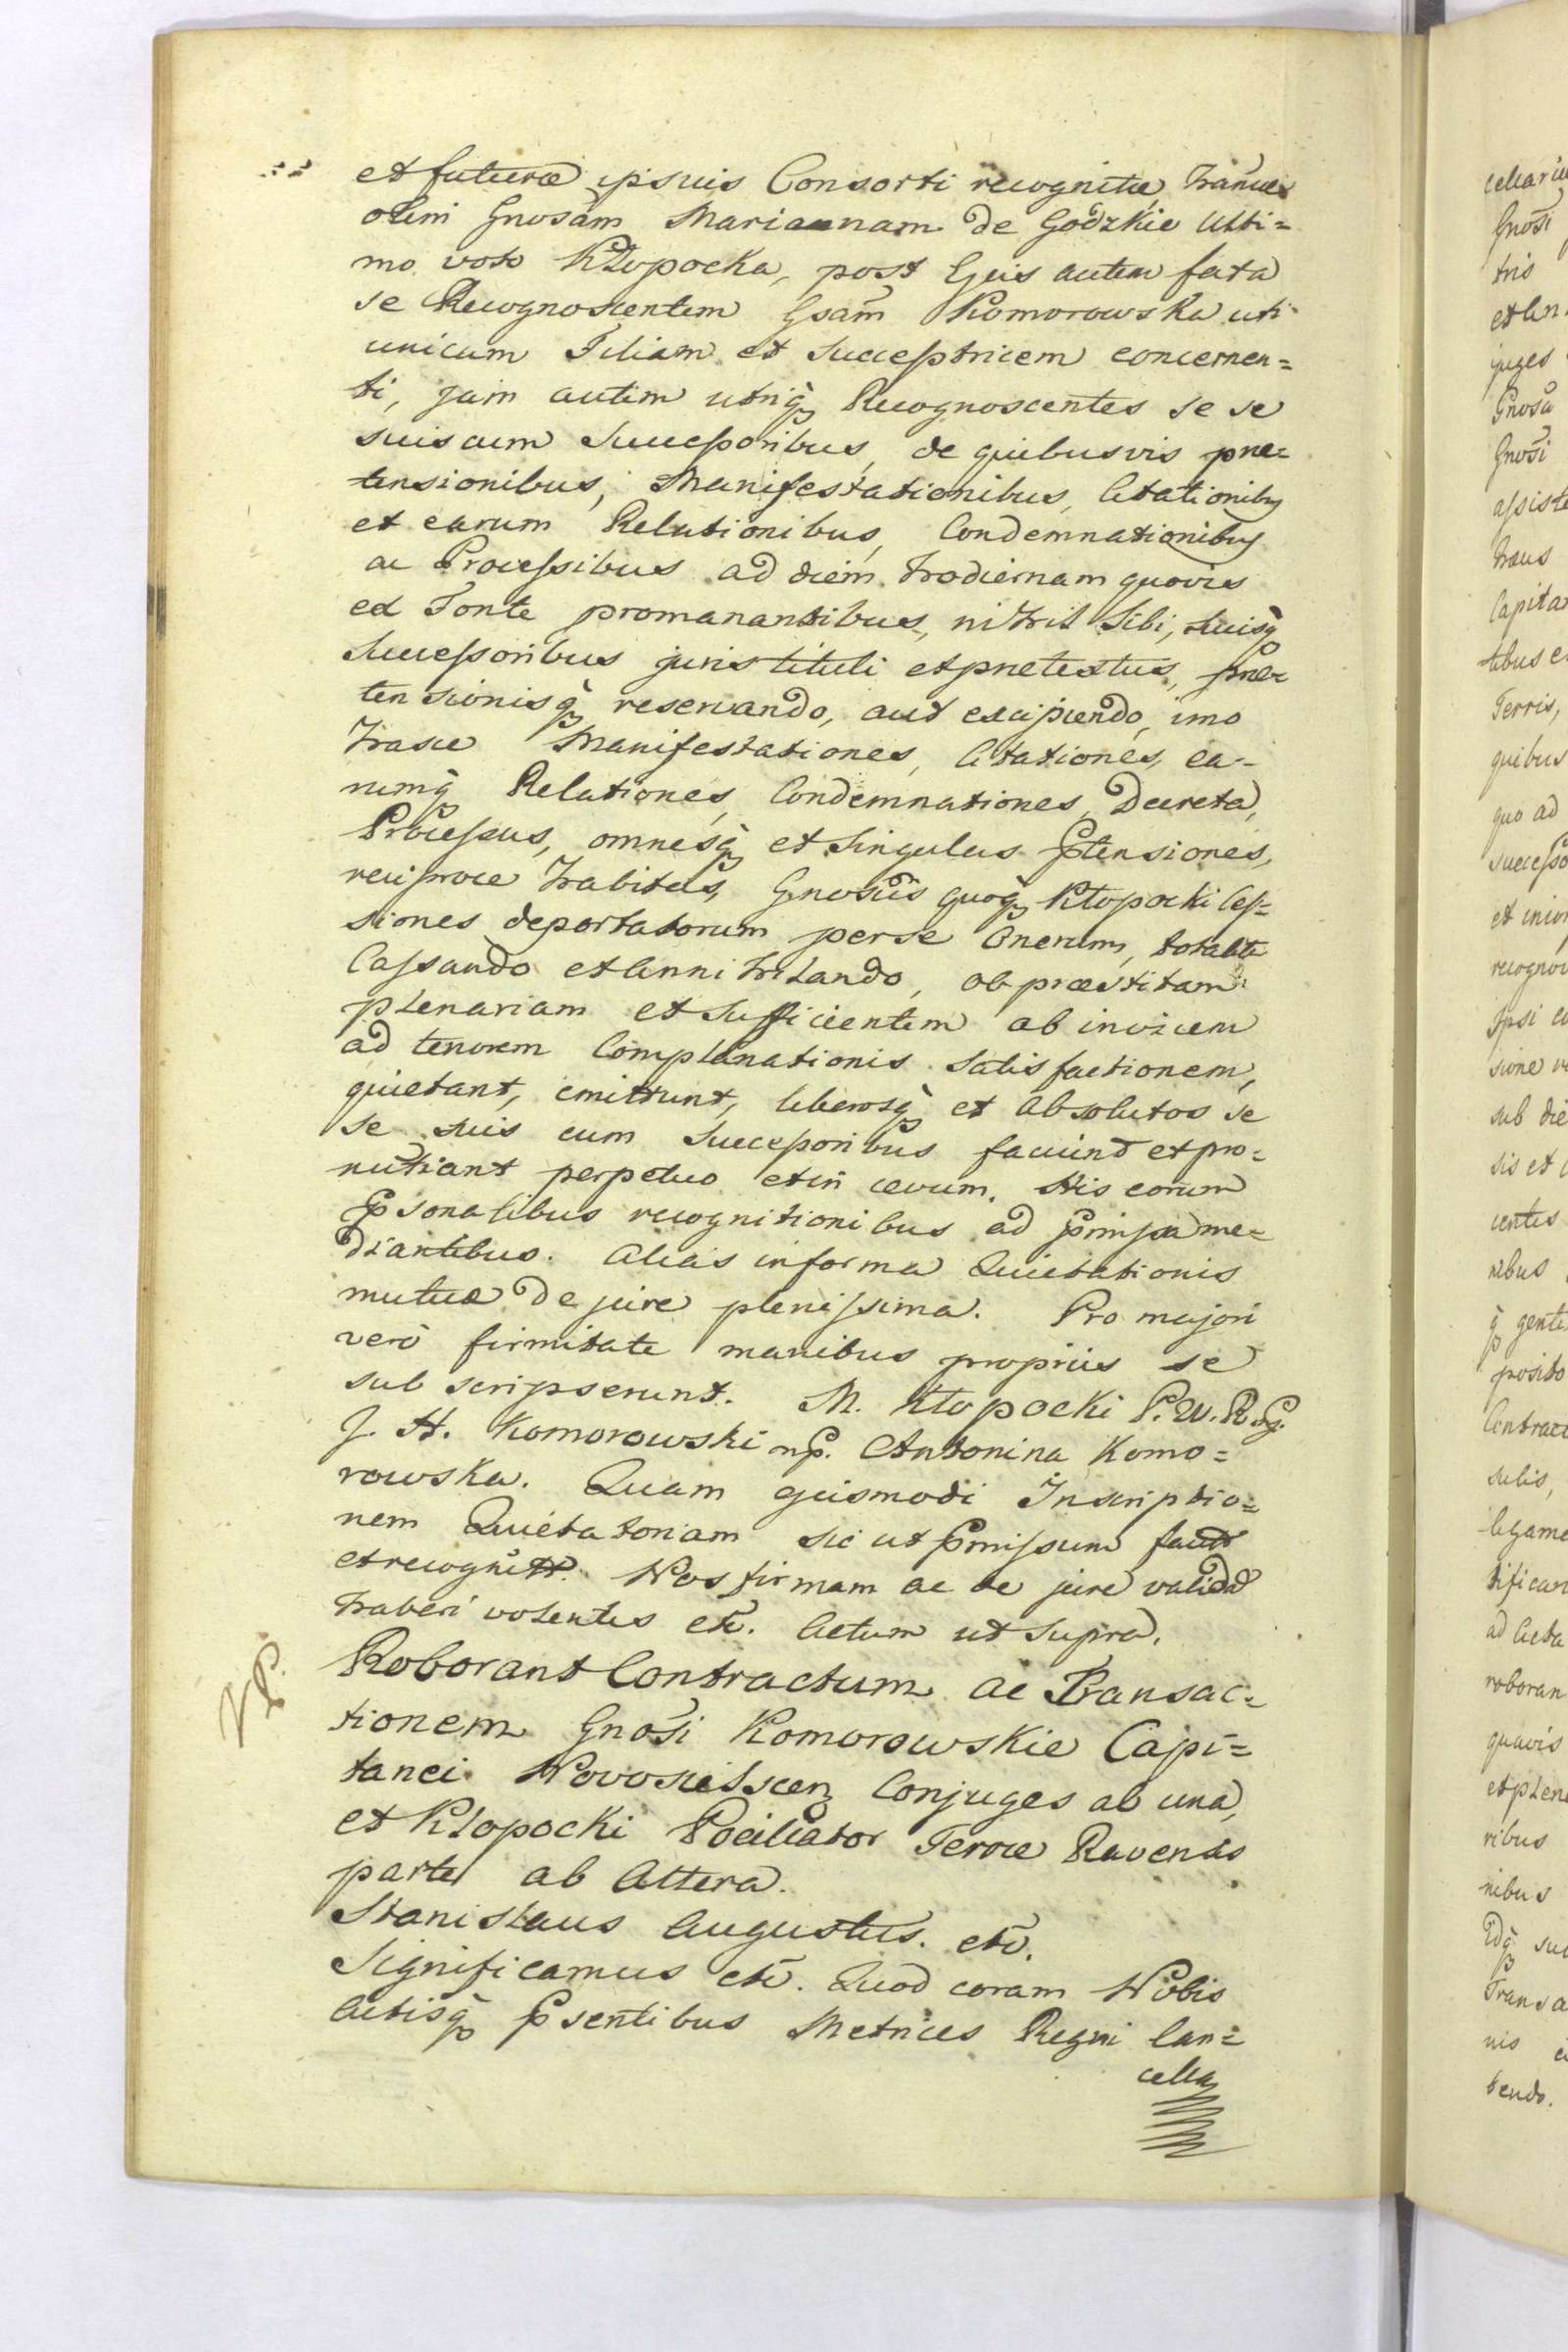 et futuræ ipsuis Consorti recognitæ, hancce
olim Gnosam Mariannam de Godzkie Ulti=
mo voto Kłopocka, post Ejus autem fata
se Recognoscentem Gsam Komorowska uti
unicam Filiam et Succeſstricem concernen=
ti, jam autem utriq̀ Recognoscentes se se
suis cum Succeſsoribus, de quibusvis præ=
tensionibus, Manifestationibus, Citationibꝯ
et earum Relationibus, Condemnationibꝯ
ac Proceſsibus ad diem hodiernam quovis
ex Fonte promanantibus, nihil Sibi, Suisq̀
Succeſsoribus juris tituli et prætextus, præ=
tensionisq̀ reservando, aut excipiendo, imo
hasce Manifestationes, Citationes, ea=
rumq̀ Relationes, Condemnationes, Decreta,
Proceſsus, omnesq̀ et Singulas Ptensiones,
reciproce habitas, Gnosus quoq̀ Kłopocki Ceſ=
siones deportatorum per se Onerum, totalite
Caſsando et Annihilando, ob præstitam
plenariam et Sufficientem ab invicem
ad tenorem Complanationis Satisfactionem,
quietant, emittunt, liberosq̀ et Absolutos se
se suis cum Succeſsoribus faciunt et pro=
nutiant perpetuo et in ævum. His eorum
Psonalibus recognitionibus ad Pmiſsa me=
diantibus. Alias in forma Quietationis
mutuæ de jure pleniſsima. Pro majori
verò firmitate manibus propriis se
subscripserunt. M. Kłopocki P. W. R. mp.
J. H. Komorowski mp. Antonina Komo=
rowska. Quam ejusmodi Inscriptio=
nem Quietatoriam sic ut Pmiſsum fact
et recognitt. Nos firmam ac de jure validã
haberi volentes etc. Actum ut Supra.
Roborant Contractum ac Transac=
tionem Gnosi Komorowskie Capi=
tanei Novosielscen Conjuges ab una,
et Kłopocki Pocillator Terræ Ravensis
parte ab Altera.
Stanislaus Augustus. etc.
Significamus etc. Quod coram Nobis
Actisq̀ Psentibus Metrices Regni Can=
cella